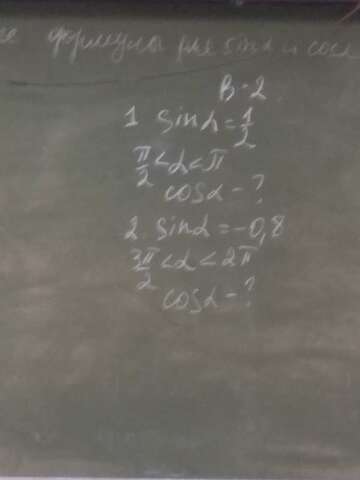 формулы для sinα и cosα
В-2.
1 sinα = 1/2
π/2 < α < π
cosα - ?
2. sinα = -0,8
3π/2 < α < 2π
cosα - ?